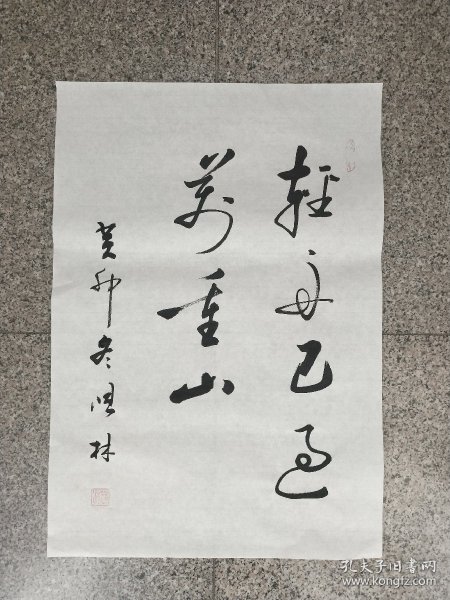 輕舟已過
萬重山
癸卯冬順林
孔夫子旧书网
www.kongfz.com